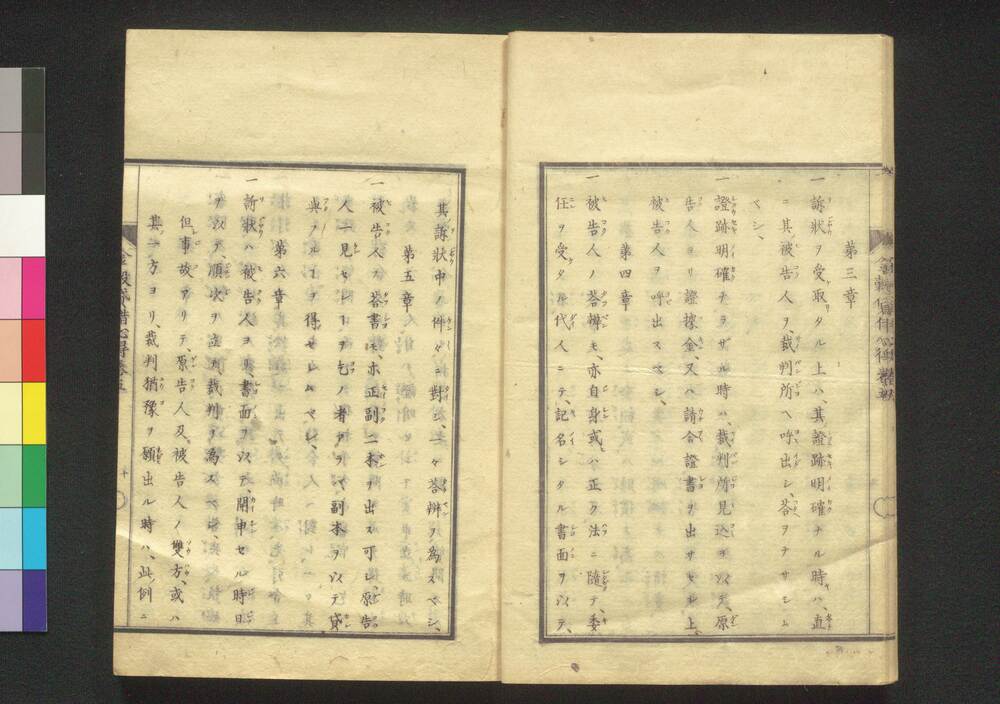 第三章
一 訴狀ヲ受取リタル上ハ、其證跡明確ナル時ハ、直
ニ其被告人ヲ、裁判所ヘ呼出シ、荅ヲナサシム
ベシ、
一 證跡明確ナラザル時ハ、裁判所見込ヲ以テ、原
告人ヨリ證據金、又ハ請合證書ヲ出サセシ上、
被告人ヲ呼出スベシ、
第四章
一 被告人ノ荅辨モ、亦自身或ハ正ク法ニ隨テ、委
任ヲ受タル代人ニテ記名シタル書面ヲ以テ、
其訴狀中ノ件々ニ對シ、一々荅辨ヲ爲スベシ、
第五章
一 被告人ノ荅書モ、亦正副二本ヲ出ス可シ、原告
人一見セン丨ヲ乞ハ者アラバ、副本ヲ以テ貸
與フル丨ヲ得セシムベシ、
第六章
一 訴狀ハ、被告人ヨリ書面ヲ以テ、開申セル時日
ヲ以テ、順次ヲ立テ、裁判ヲ爲スベシ、
但事故アリテ原告人及、被告人ノ雙方、或ハ
其一方ヨリ、裁判猶豫ヲ願出ル時ハ、此例ニ